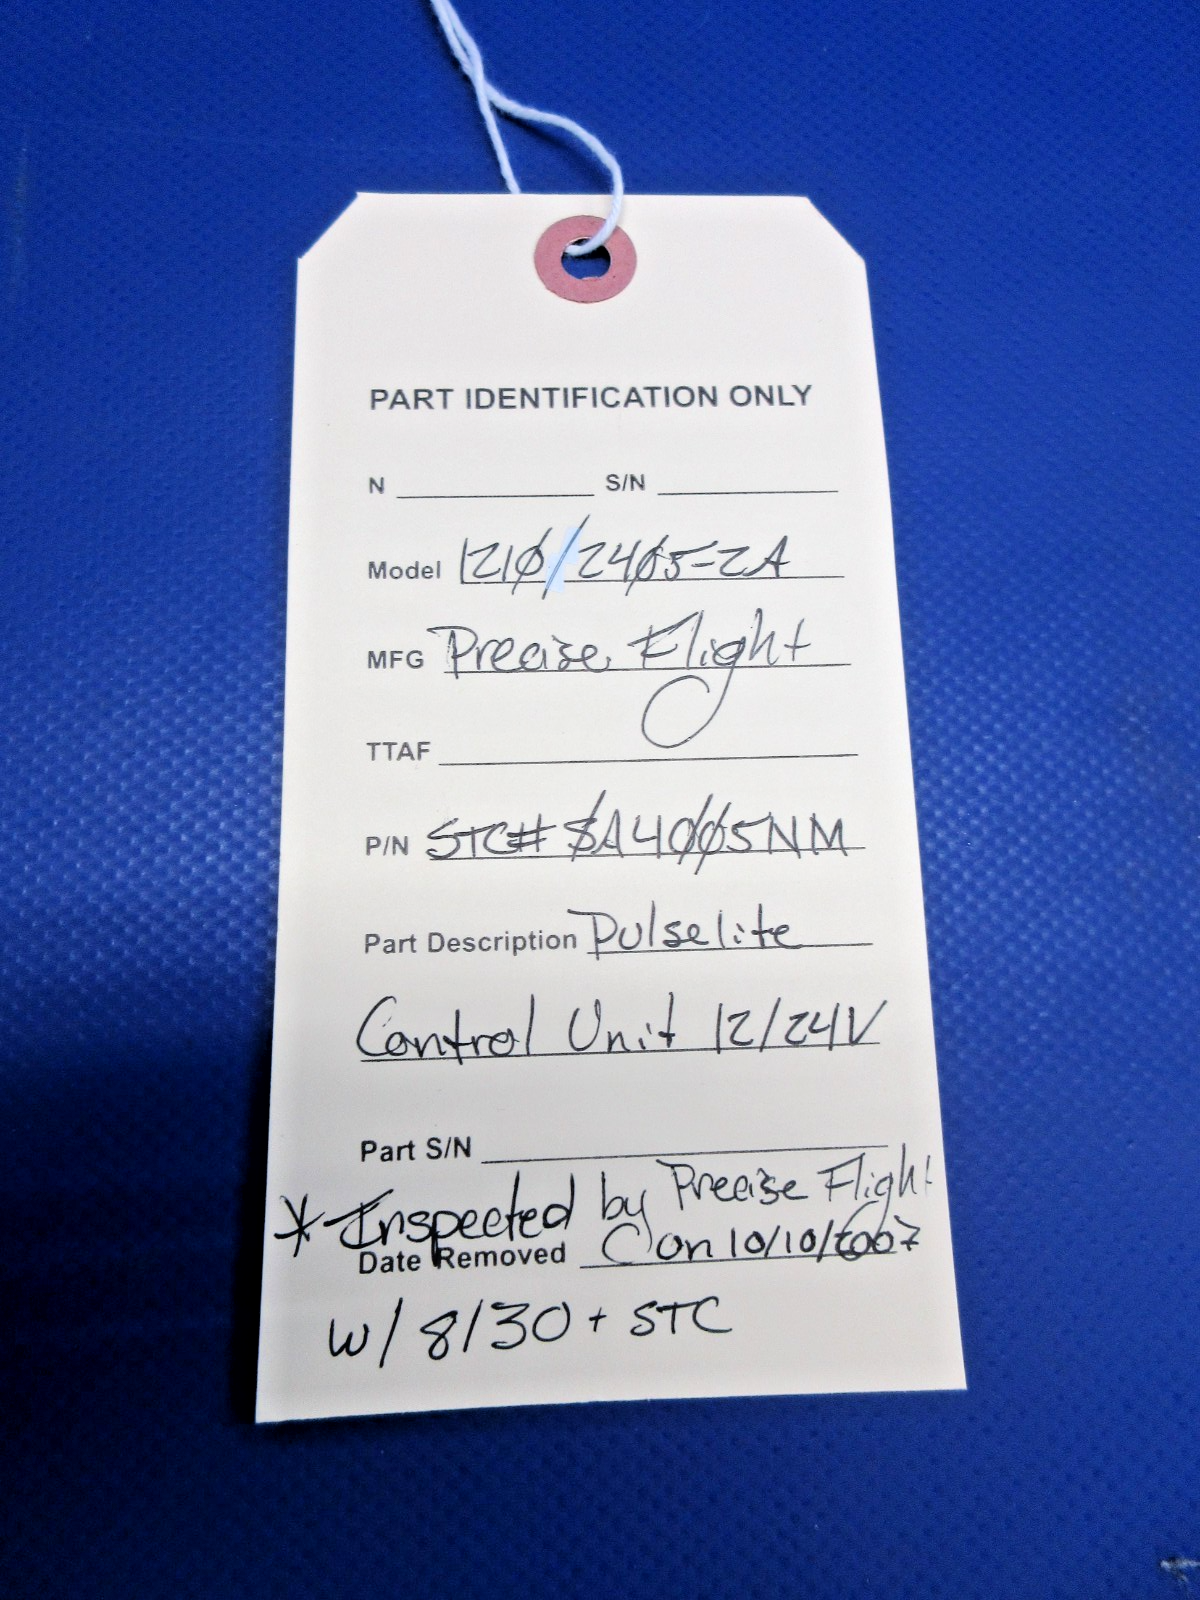 PART IDENTIFICATION ONLY
N S/N
Model 1210/2405-2A
MFG Precise Flight
TTAF
P/N STC# SA4005NM
Part Description Pulselite
Control Unit 12/24V
Part S/N
* Inspected by Precise Flight
Date Removed on 10/10/2007
w/ 8130 + STC